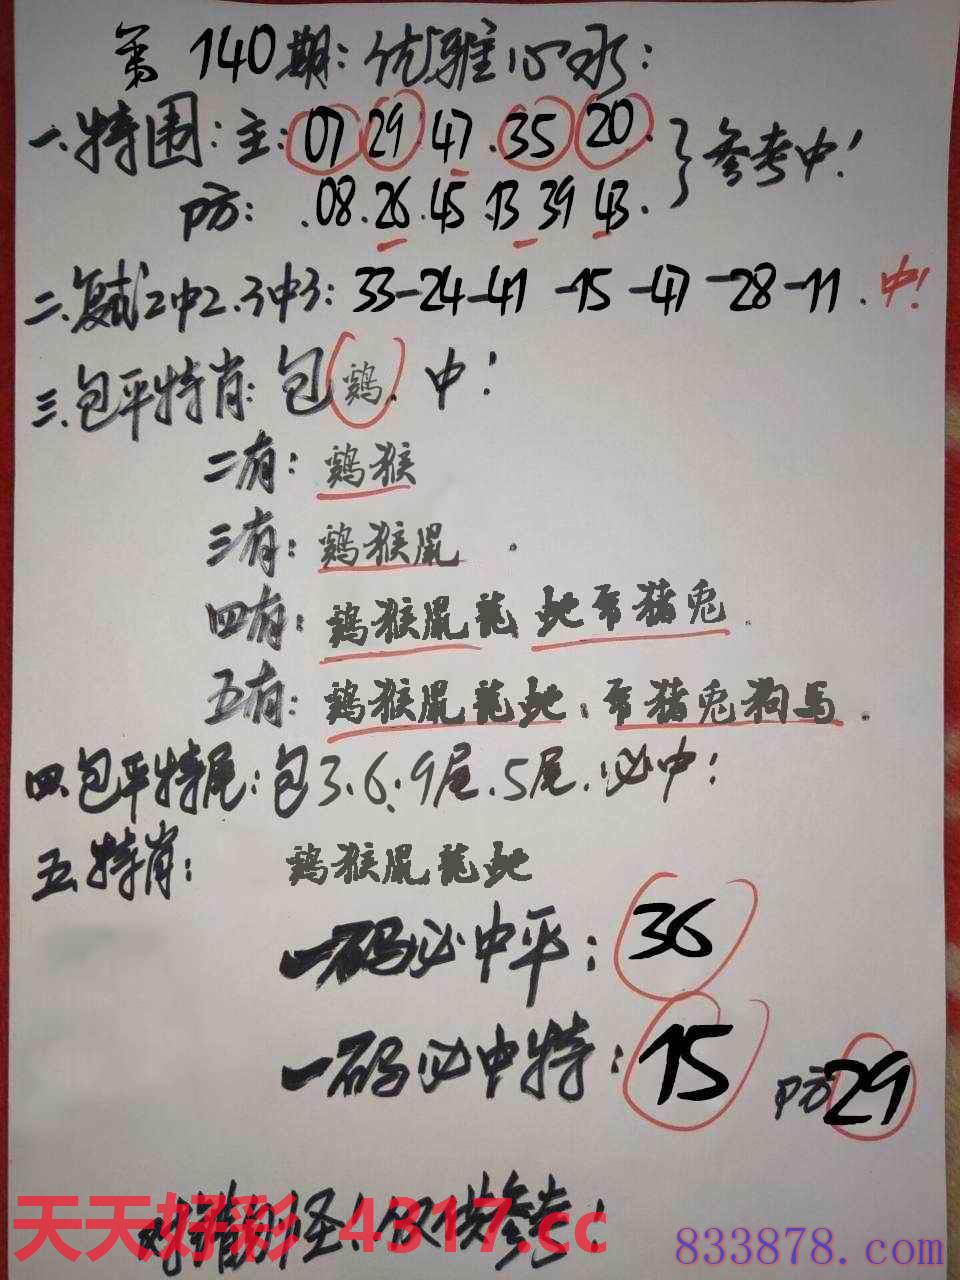 第140期:优雅心水:
一.特围:主:07 29.47.35 20.
参考中!
防: .08.26.45.13 39 43.
二.复试2中2.3中3:33-24-41-15-47-28-11.中!
三.包平特肖:包鸡.中!
二有:鸡猴
三有:鸡猴鼠.
四有:鸡猴鼠龍 蛇 猪兔.
五有:鸡猴鼠龍蛇: 猪兔狗马.
四.包平特尾:包3.6.9尾.5尾.必中!
五.特肖: 鸡猴鼠龍蛇
一码必中平:36
一码必中特:15 防29
对错 怪!仅供参考!
天天好彩 4317.cc
833878.com